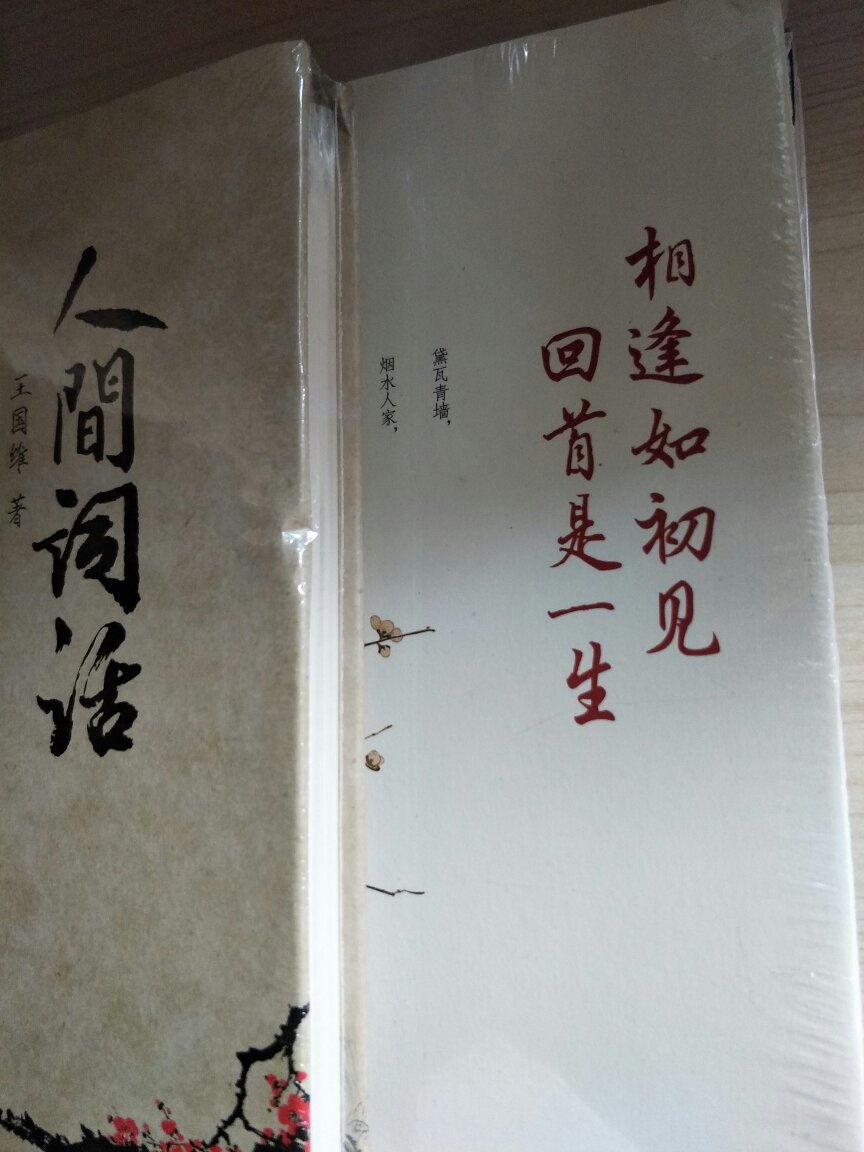 人間词话
王国维 著
相逢如初见
回首是一生
黛瓦青墙，
烟水人家，